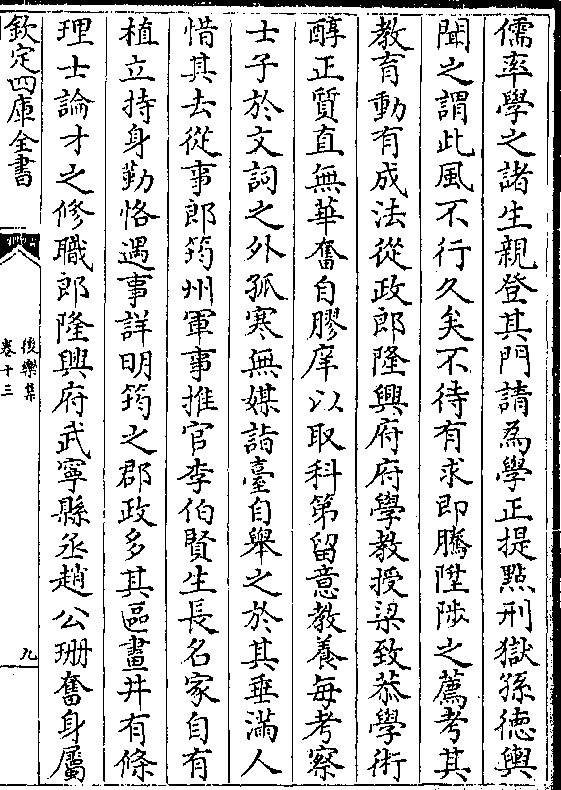 儒率學之諸生親登其門請為學正提點刑獄孫德輿
聞之謂此風不行久矣不待有求即騰陞陟之薦考其
教育動有成法從政郎隆興府府學教授梁致恭學術
醇正質直無華奮自膠庠以取科第留意教養每考察
士子於文詞之外孤寒無媒詣臺自舉之於其垂滿人
惜其去從事郎筠州軍事推官李伯賢生長名家自有
植立持身勤恪遇事詳明筠之郡政多其區畫井有條
理士論才之修職郎隆興府武寧縣丞趙公珊奮身屬
欽定四庫全書
後樂集
卷十三
九